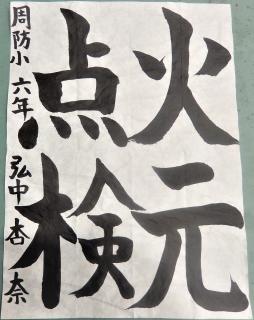 火元
点検
周防小 六年 弘中 杏奈